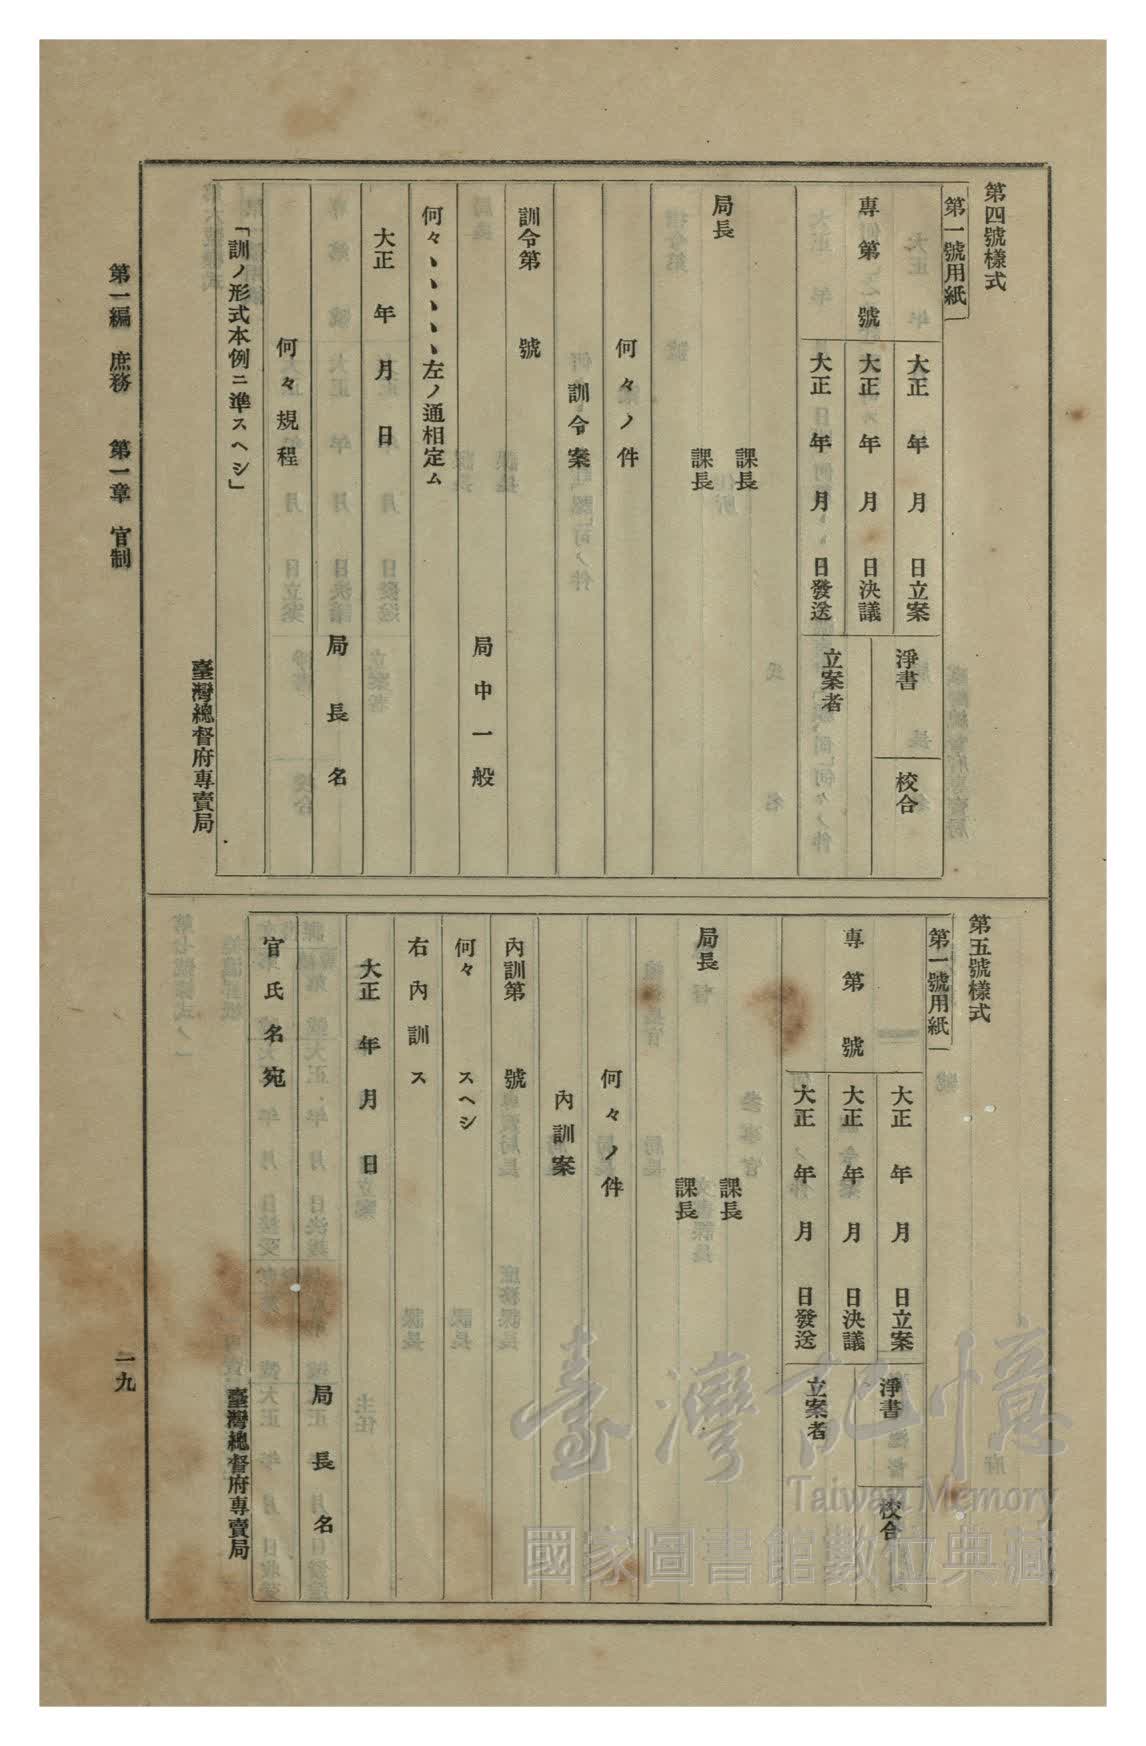 第四號樣式
第一號用紙
專第 號
大正 年 月 日立案
大正 年 月 日決議
大正 年 月 日發送
淨書
校合
立案者
局長
課長
課長
何々ノ件
訓令案
訓令第 號
局中一般
何々、、、、、左ノ通相定ム
大正 年 月 日
局長名
何々規程
「訓ノ形式本例ニ準スヘシ」
臺灣總督府專賣局
第五號樣式
第一號用紙
專第 號
大正 年 月 日立案
大正 年 月 日決議
大正 年 月 日發送
淨書
校合
立案者
局長
課長
課長
何々ノ件
內訓案
內訓第 號
何々 スヘシ
右內訓ス
大正 年 月 日
局長名
官氏名宛
臺灣總督府專賣局
第一編 庶務 第一章 官制
一九
臺灣記憶
Taiwan Memory
國家圖書館數位典藏